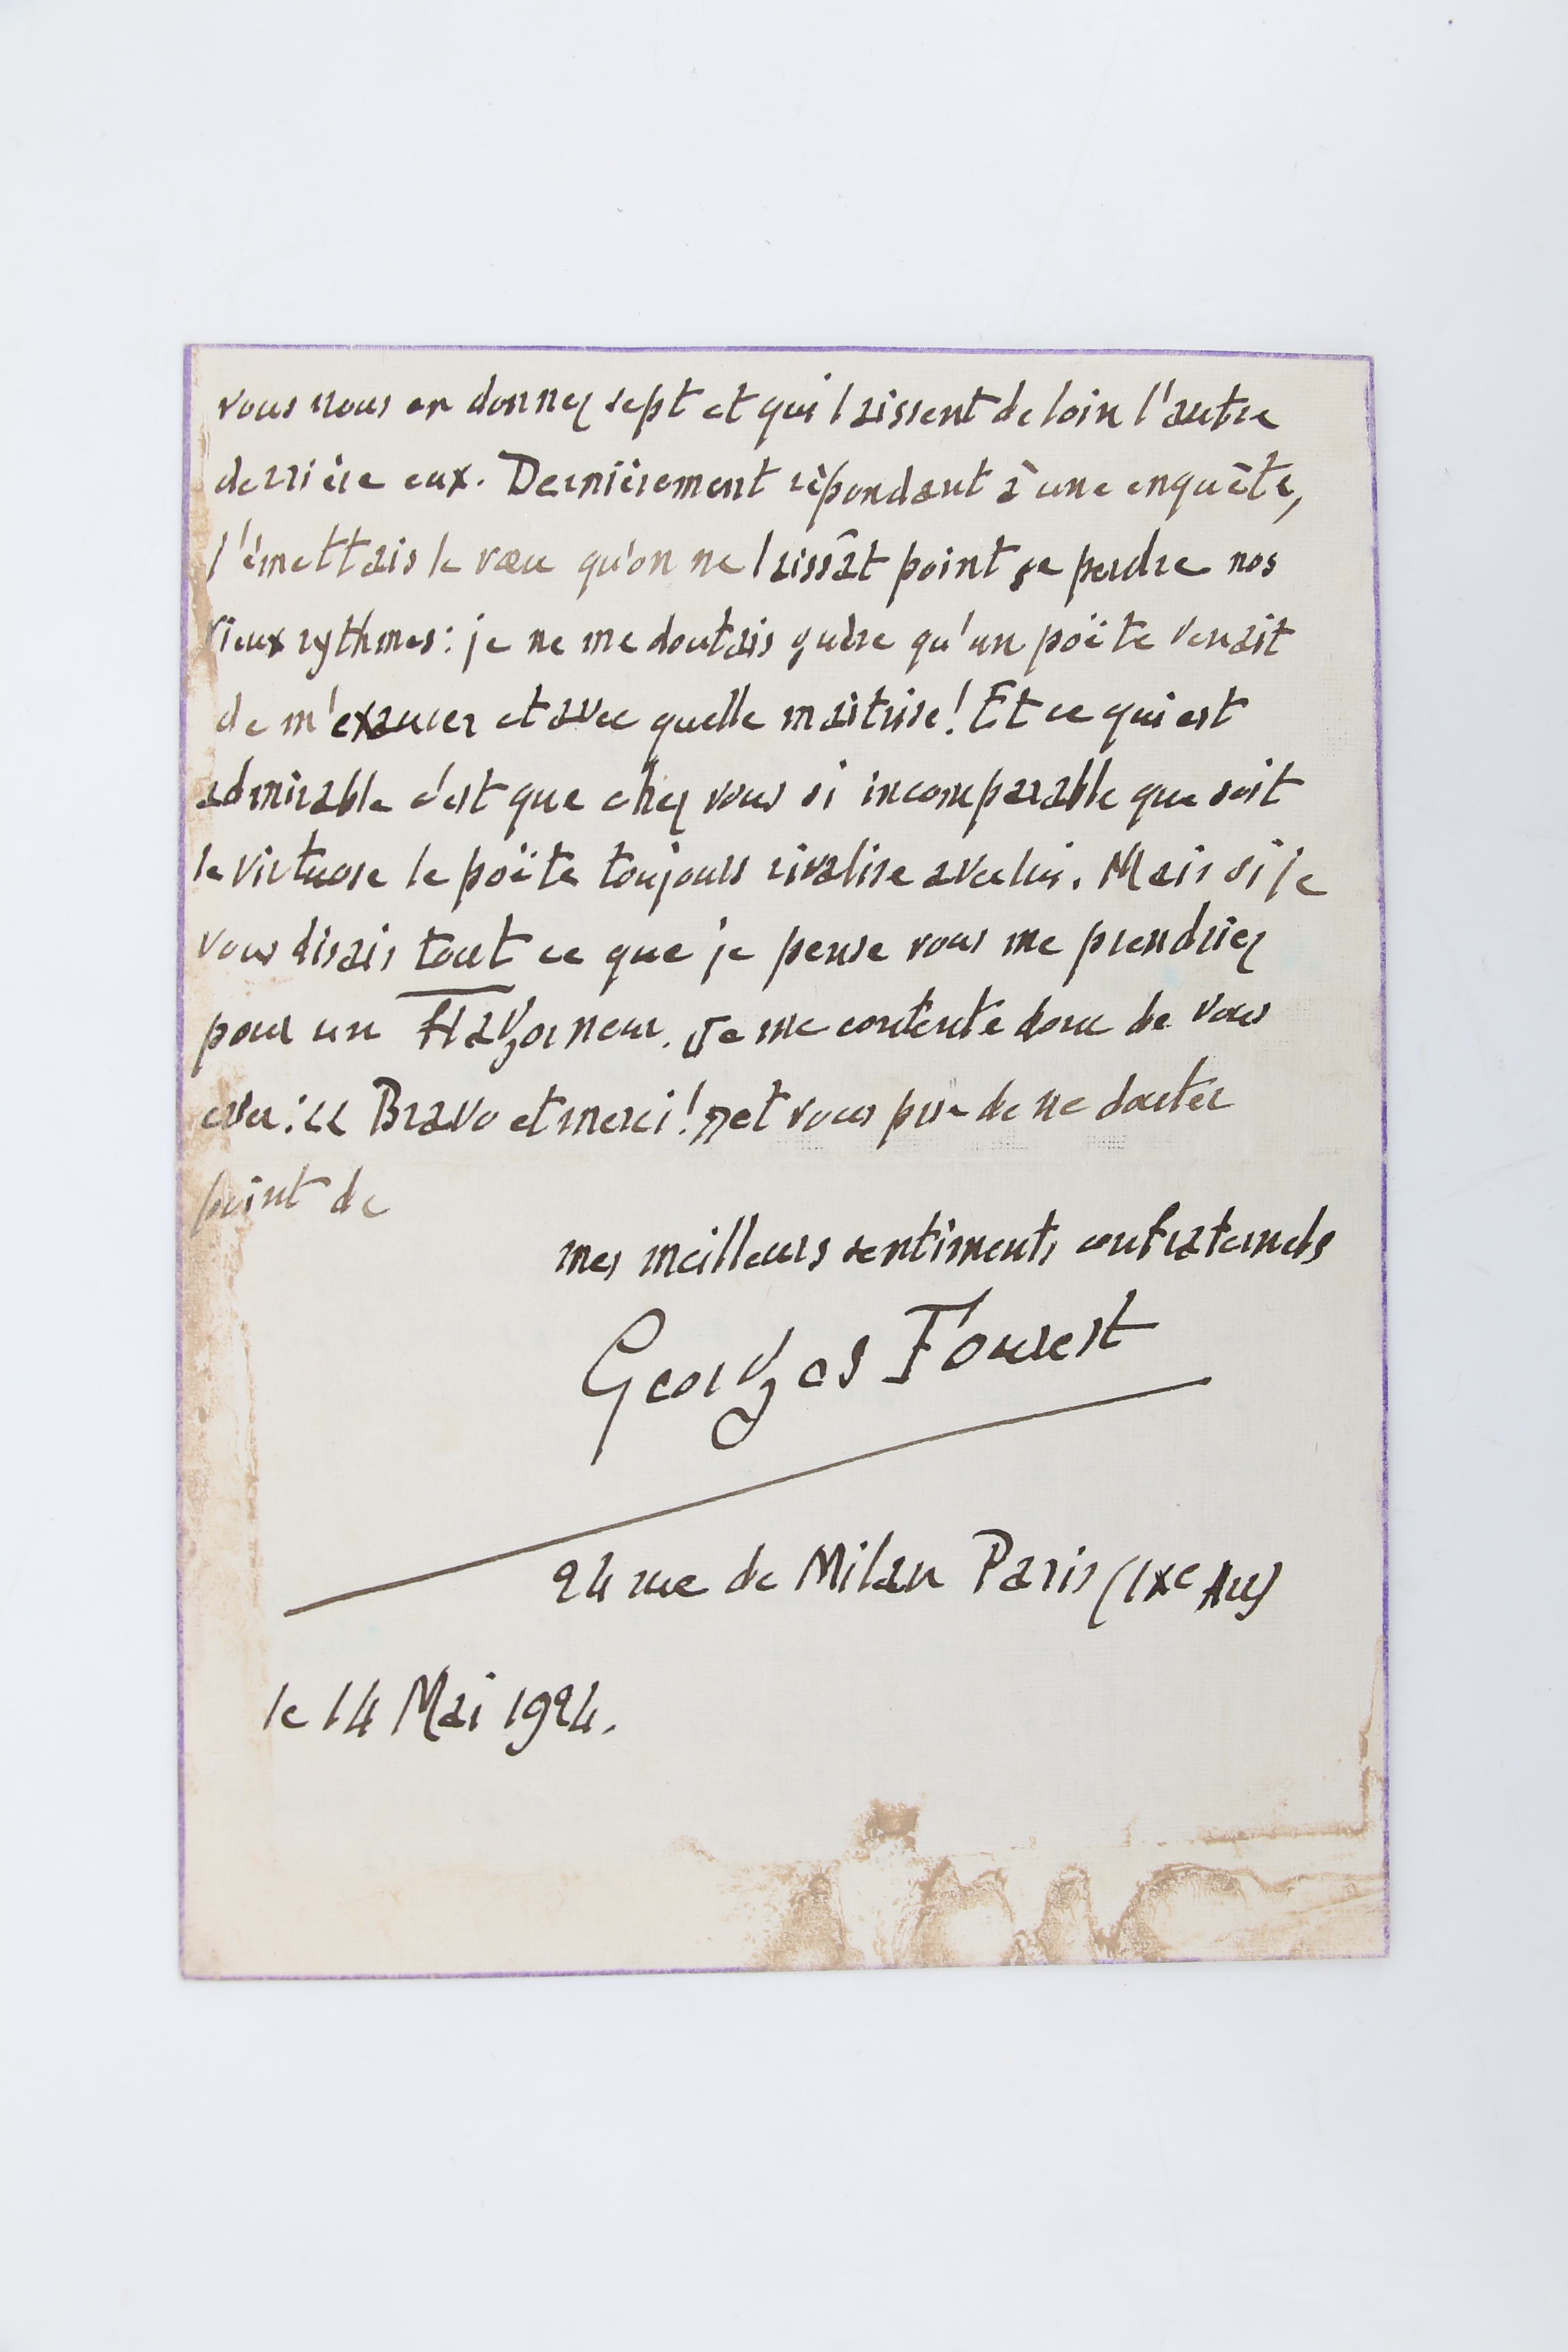 vous nous en donnez sept et qui laissent de loin l'autre
derrière eux. Dernièrement répondant à une enquête,
j'émettais le vœu qu'on ne laissât point se perdre nos
vieux rythmes : je ne me doutais guère qu'un poëte venait
de m'exaucer et avec quelle maîtrise ! Et ce qui est
admirable c'est que chez vous si incomparable que soit
le virtuose le poëte toujours rivalise avec lui. Mais si je
vous disais tout ce que je pense vous me prendriez
pour un flagorneur. Je me contente donc de vous
crier : « Bravo et merci ! » et vous prie de ne douter
point de
mes meilleurs sentiments confraternels
Georges Fourest
24 rue de Milan Paris (IXe Arr)
le 14 Mai 1924.